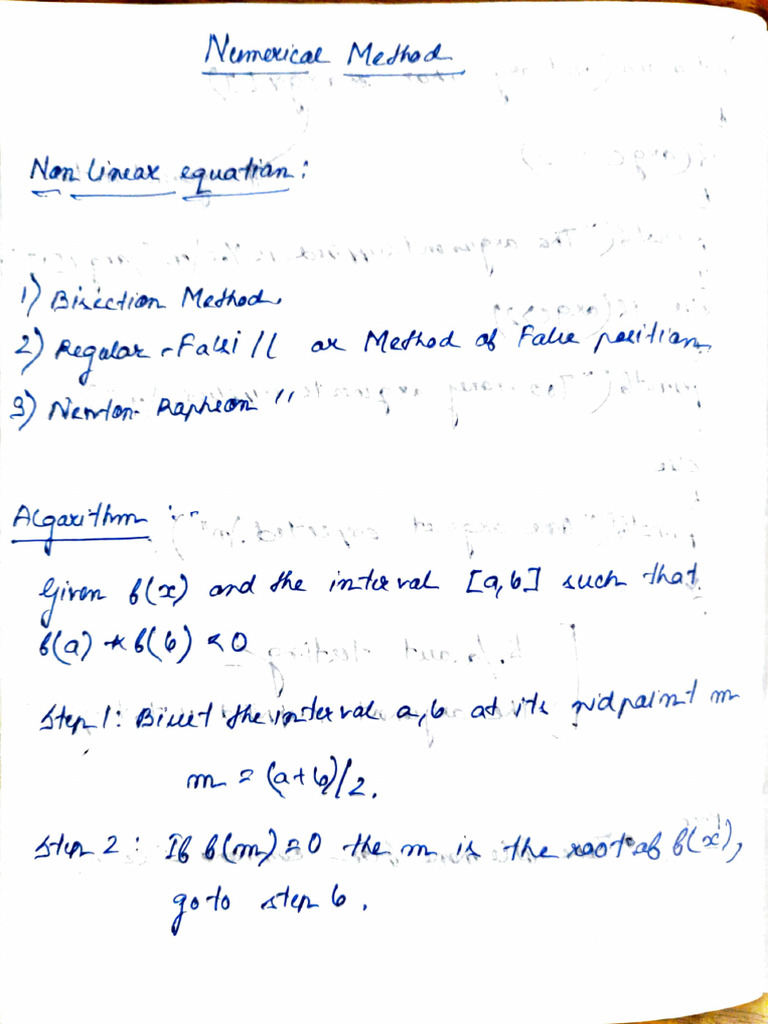 Numerical Method
Non linear equation:
1) Bisection Method.
2) Regular-Falsi // or Method of False position
3) Newton-Raphson //
Algorithm :-
Given f(x) and the interval [a,b] such that
f(a) * f(b) < 0
Step 1: Bisect the interval a,b at its midpoint m
m = (a+b)/2.
Step 2: If f(m)=0 the m is the root of f(x),
go to step 6.